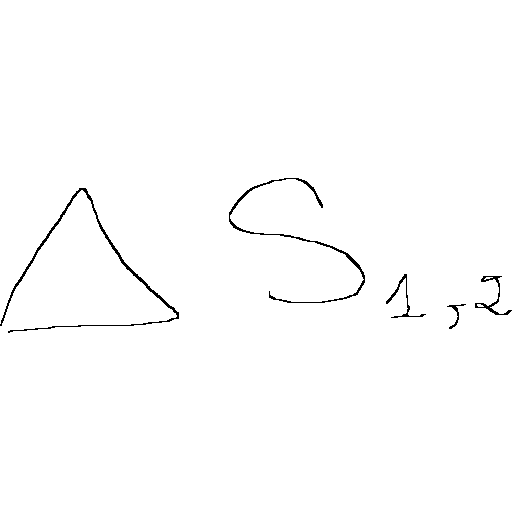 Δ S₁,₂